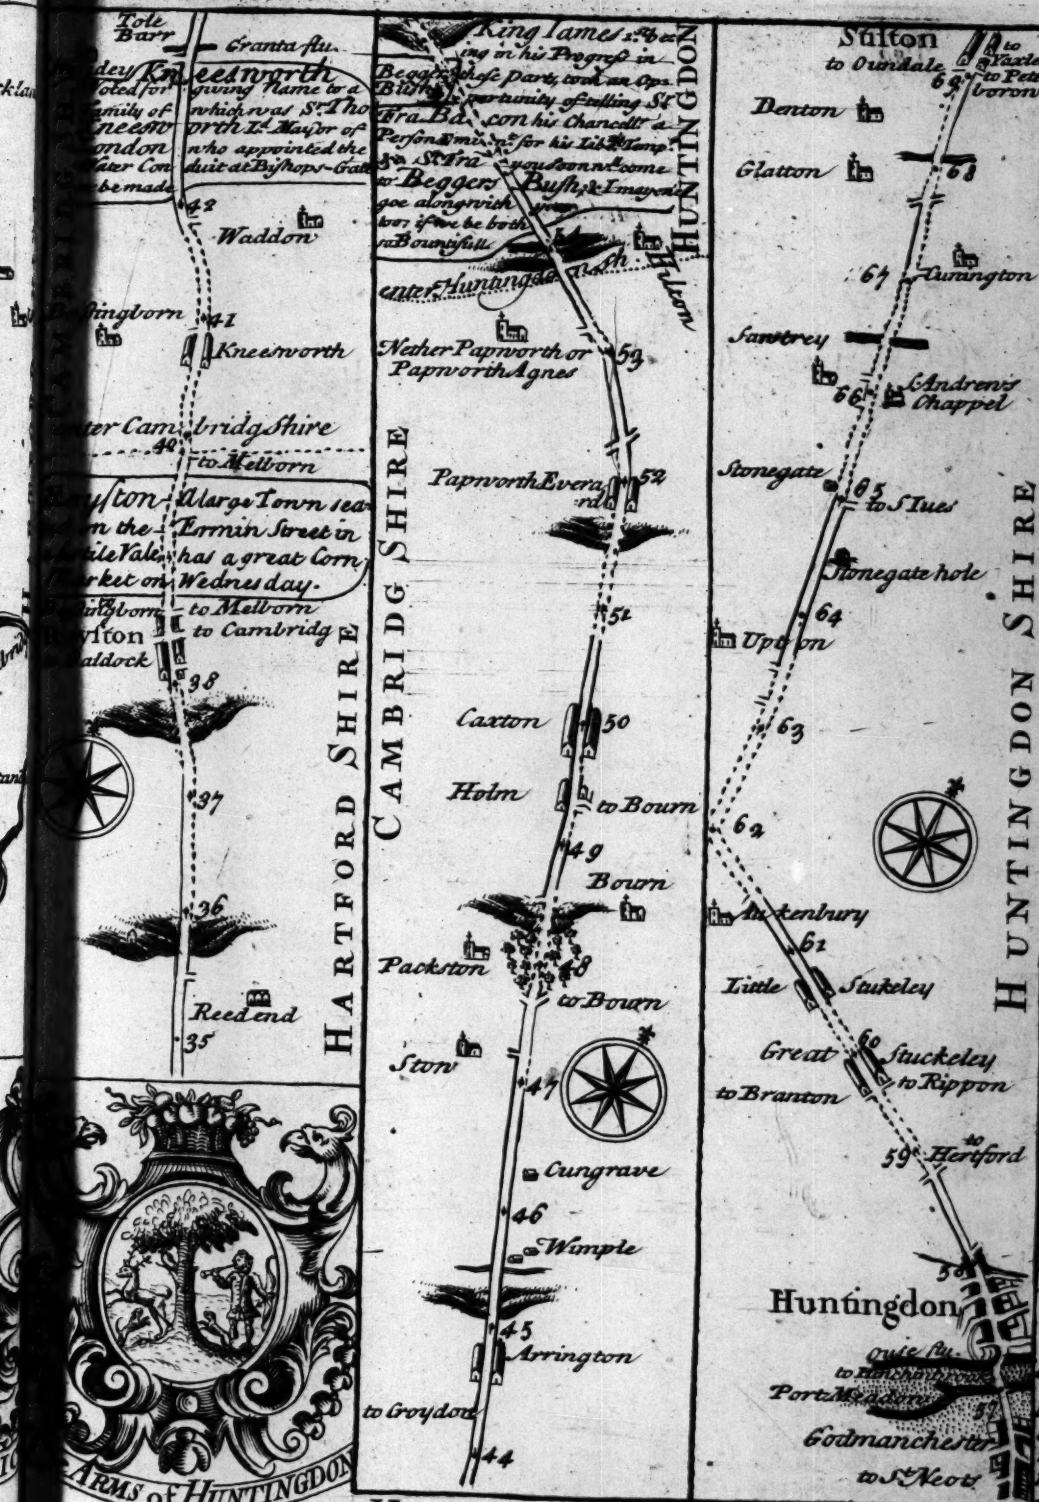 Tole
Barr
Granta flu.
Kneesworth
Noted for giving Name to a
family of which was Sr. Tho
Kneesworth Ld. Mayor of
London who appointed the
Water Conduit at Bishops-Gate
to be made
42
Waddon
Bassingborn
41
Kneesworth
enter Cambridg Shire
40
to Melborn
Royston A large Town sea
on the Ermin Street in
a fertile Vale has a great Corn
Market on Wednesday.
Bassingborn
to Melborn
Royston
to Cambridg
to Baldock
38
37
36
Reedend
35
HARTFORD SHIRE
ARMS of HUNTINGDON
King Iames 1st. be
ing in his Progress in
these parts, took an Op
portunity of telling Sr.
Fra Bacon his Chancellr. a
Beggers
Bush
to Beggers Bush, & I may
goe along with you
too; if we be both
so Bountifull
HUNTINGDON
54
Hilton
enter Huntingdon Sh
Nether Papworth or
Papworth Agnes
53
Papworth Evera
rd
52
51
CAMBRIDG SHIRE
Caxton
50
Holm
to Bourn
49
Bourn
Packston
48
to Bourn
Ston
47
Cungrave
46
Wimple
45
Arrington
to Croydon
44
Stilton
to Oundale
to
Yaxle
to Pete
boron
69
Denton
Glatton
68
67
Cunington
Sawtrey
66
St. Andrew's
Chappel
Stonegate
65
to S Iues
Stonegate hole
64
Upton
63
62
Aukenbury
61
Little
Stukeley
60
Great
Stuckeley
to Branton
to Rippon
59
to
Hertford
HUNTINGDON SHIRE
58
Huntingdon
Ouse flu.
to Hinchinbrook
Port Meadow
57
Godmanchester
to St. Neots